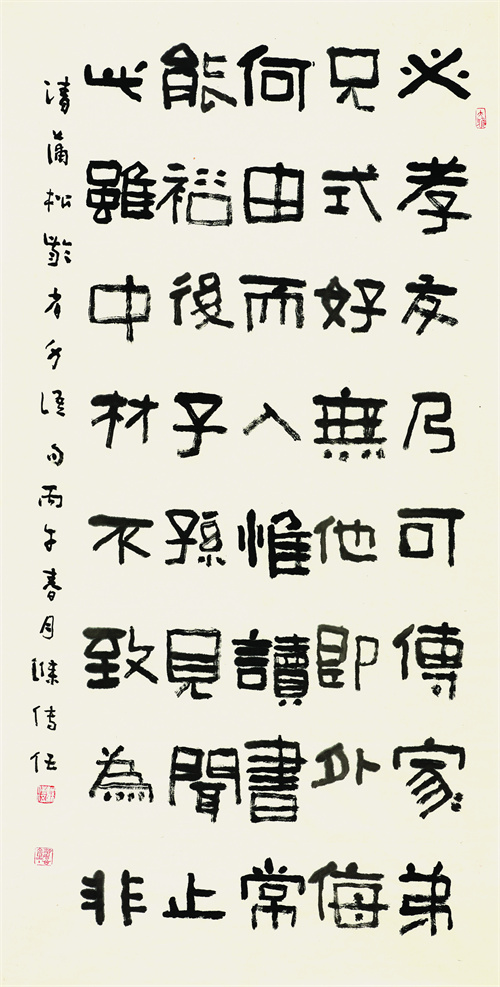 必孝友乃可傳家弟
兄式好無他即外侮
何由而入惟讀書常
能裕後子孫見聞止
此雖中材不致為非
清蒲松齡省身語句丙午春月